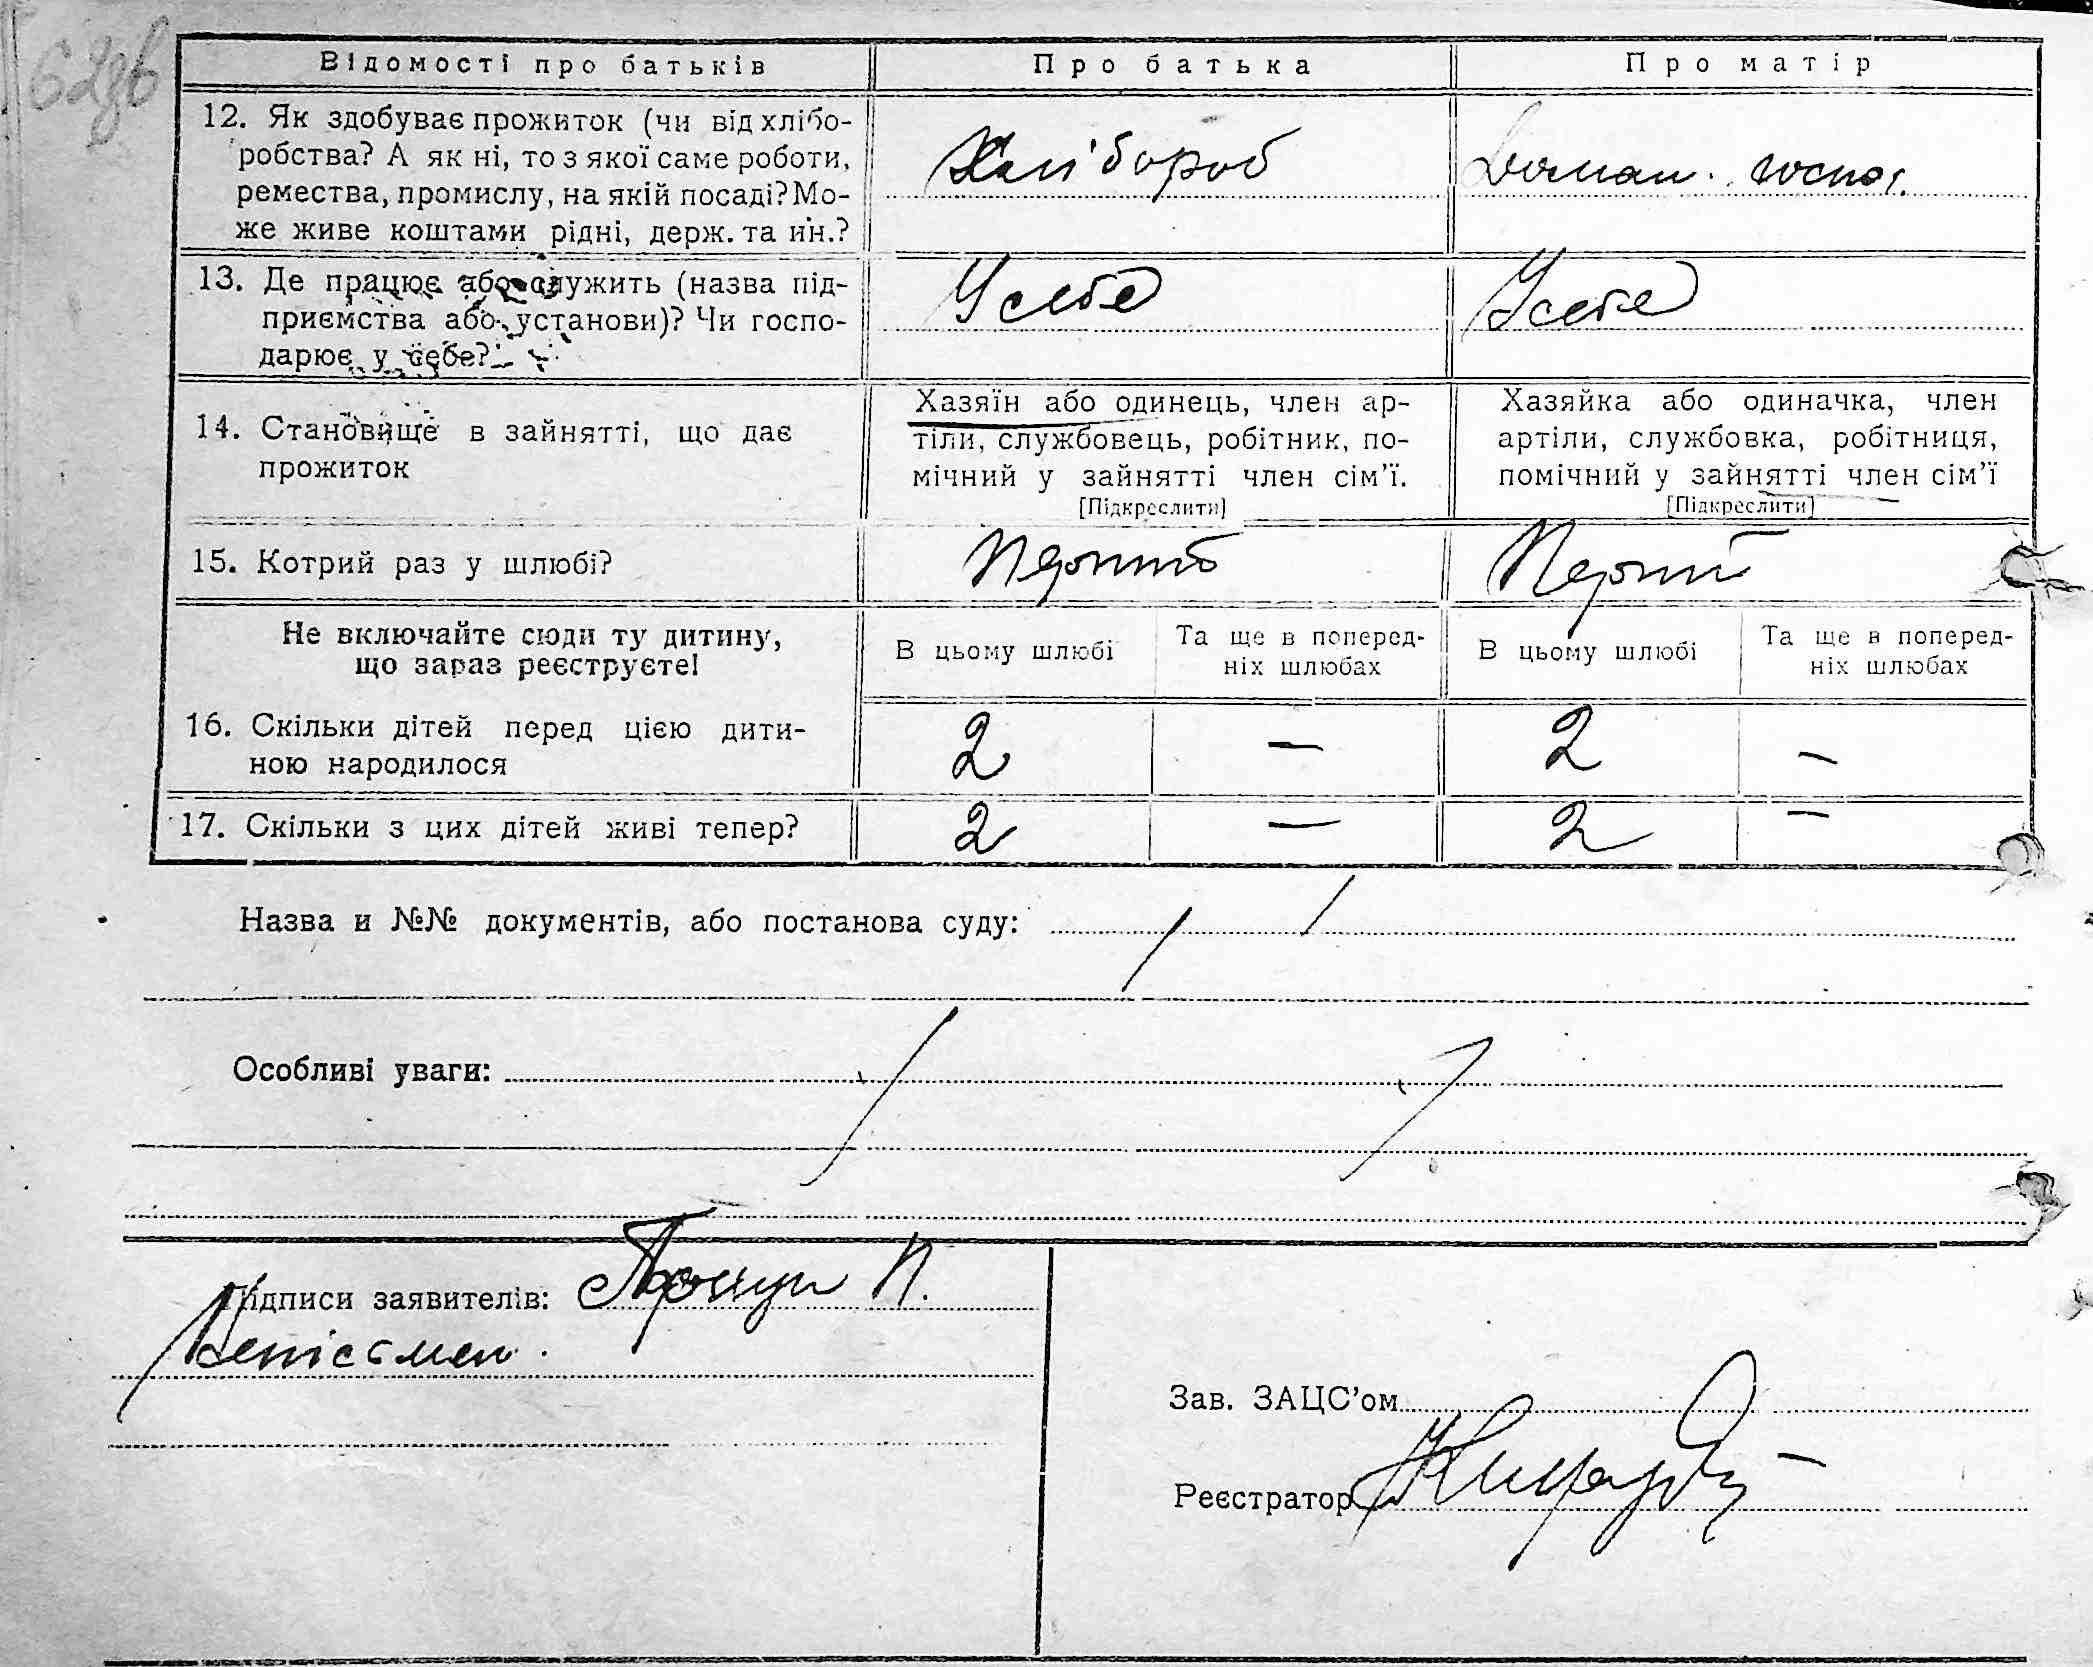 62зв
Відомості про батьків
Про батька
Про матір
12. Як здобуває прожиток (чи від хлібо-
робства? А як ні, то з якої саме роботи,
ремества, промислу, на якій посаді? Мо-
же живе коштами рідні, держ. та ин.?
Хлібороб
Домаш. госпо.
13. Де працює або служить (назва під-
приємства або установи)? Чи госпо-
дарює у себе?
У себе
У себе
14. Становище в зайнятті, що дає
прожиток
Хазяїн або одинець, член ар-
тіли, службовець, робітник, по-
мічний у зайнятті член сім'ї.
[Підкреслити]
Хазяйка або одиначка, член
артіли, службовка, робітниця,
помічний у зайнятті член сім'ї
[Підкреслити]
15. Котрий раз у шлюбі?
Перший
Перший
Не включайте сюди ту дитину,
що зараз реєструєте!
В цьому шлюбі
Та ще в поперед-
ніх шлюбах
В цьому шлюбі
Та ще в поперед-
ніх шлюбах
16. Скільки дітей перед цією дити-
ною народилося
2 — 2 —
17. Скільки з цих дітей живі тепер?
2 — 2 —
Назва и №№ документів, або постанова суду:
Особливі уваги:
Підписи заявителів: П.
Неписьмен.
Зав. ЗАЦС'ом
Реєстратор